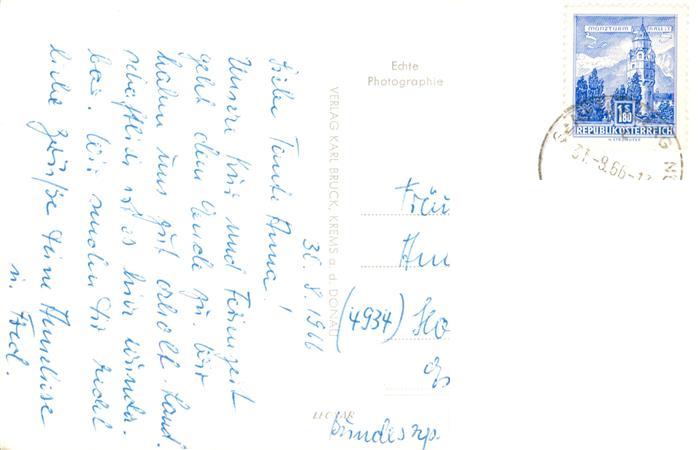 30. 8. 1966
Liebe Tante Anna!
Unsere Kur und Ferienzeit
geht dem Ende zu. Wir
haben uns gut erholt. Land-
schaftlich ist es hier wunder-
bar. Wir senden Dir recht
liebe Grüße Deine Anneliese
u. Fred.
VERLAG KARL BRUCK, KREMS a. d. DONAU
Echte
Photographie
MÜNZTURM HALL i. T.
S 1.80
REPUBLIK ÖSTERREICH
31.-8.66-
Frau
Ann
(4934) Ho
Bundesrp.